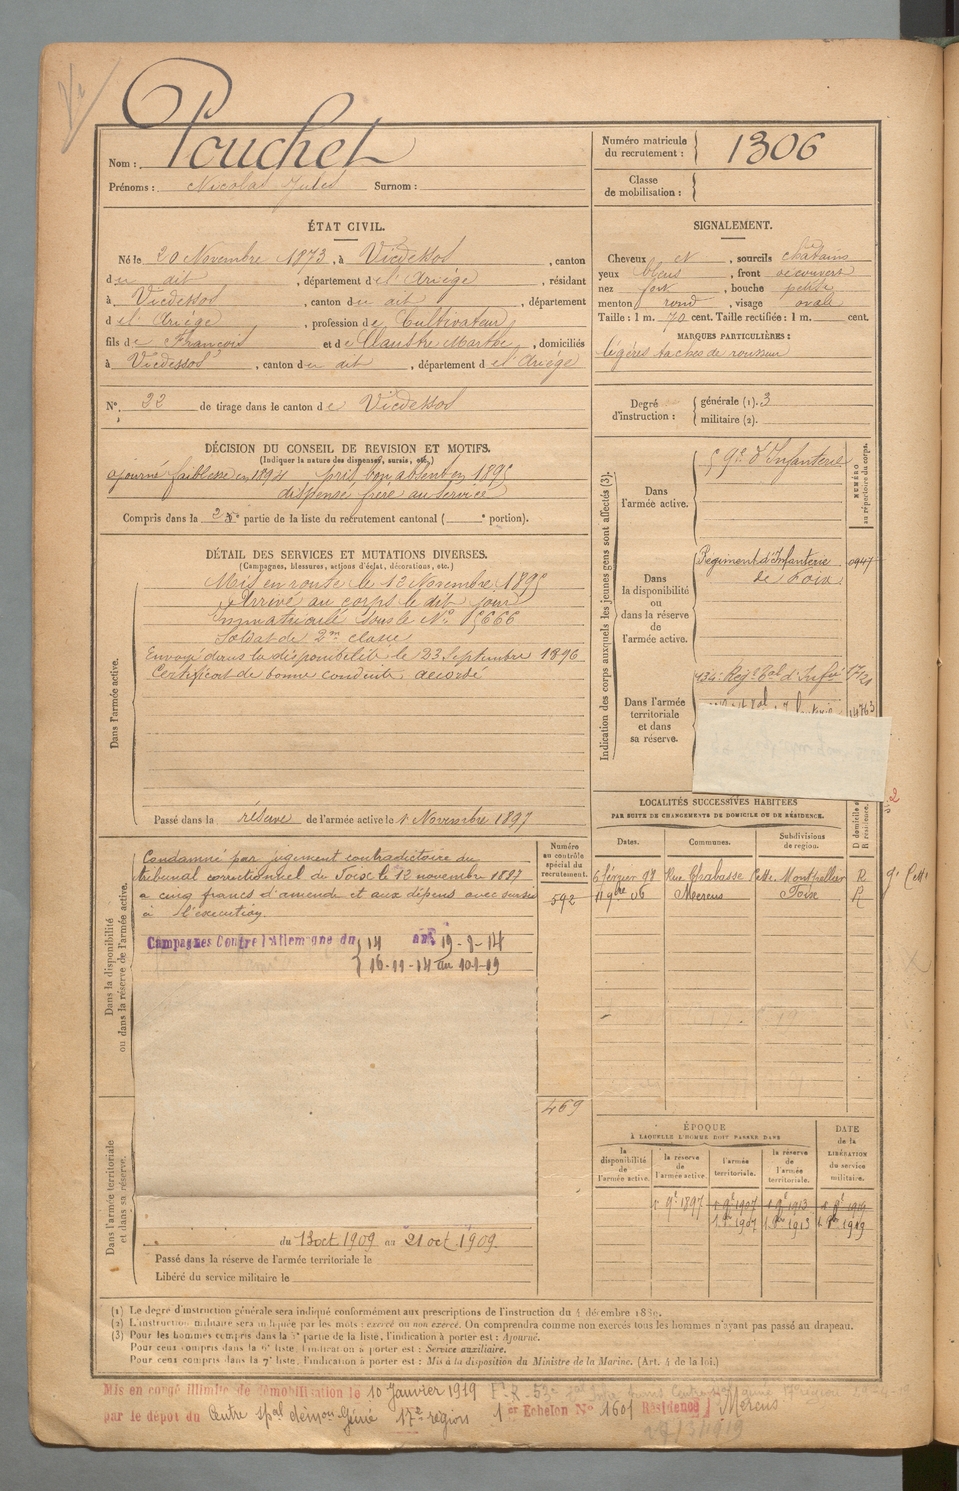 Pouchet
Nom :
Prénoms : Nicolas Jules Surnom :
Numéro matricule du recrutement : 1306
Classe de mobilisation :
ÉTAT CIVIL.
Né le 20 Novembre 1873, à Vicdessos, canton
du dit, département de l'Ariége, résidant
à Vicdessos, canton du dit, département
d e l'Ariége, profession de Cultivateur,
fils de François et de Claustre Marthe, domiciliés
à Vicdessos, canton du dit, département de l'Ariége
N° 22 de tirage dans le canton de Vicdessos
SIGNALEMENT.
Cheveux et, sourcils châtains
yeux bleus, front découvert
nez fort, bouche petite
menton rond, visage ovale
Taille : 1 m. 70 cent. Taille rectifiée : 1 m. cent.
MARQUES PARTICULIÈRES :
légères taches de rousseur
Degré d'instruction : générale (1). 3
militaire (2).
DÉCISION DU CONSEIL DE REVISION ET MOTIFS.
(Indiquer la nature des dispenses, sursis, etc.)
ajourné faiblesse en 1894 pris bon absent en 1895
dispensé frère au service
Compris dans la 2e partie de la liste du recrutement cantonal ( e portion).
DÉTAIL DES SERVICES ET MUTATIONS DIVERSES.
(Campagnes, blessures, actions d'éclat, décorations, etc.)
Dans l'armée active.
Mis en route le 12 Novembre 1895
Arrivé au corps le dit jour
Immatriculé sous le N° 15666
Soldat de 2me classe
Envoyé dans la disponibilité le 23 Septembre 1896
Certificat de bonne conduite accordé
Passé dans la réserve de l'armée active le 1 Novembre 1897
Indication des corps auxquels les jeunes gens sont affectés (3).
NUMÉRO au répertoire du corps.
Dans l'armée active.
59e d'Infanterie
Dans la disponibilité ou dans la réserve de l'armée active.
Régiment d'Infanterie de Foix
0947
Dans l'armée territoriale et dans sa réserve.
134e Reg. tal d'Infie
14763
LOCALITÉS SUCCESSIVES HABITÉES
PAR SUITE DE CHANGEMENTS DE DOMICILE OU DE RÉSIDENCE.
Dates. Communes. Subdivisions de région. D domicile R résidence.
6 février 98 Rue Chabasse Cette Montpellier R
11 9bre 06 Mercus Foix R
Dans la disponibilité ou dans la réserve de l'armée active.
Numéro au contrôle spécial du recrutement.
592
Condamné par jugement contradictoire du
tribunal correctionnel de Foix le 12 novembre 1897
a cinq francs d'amende et aux dépens avec sursis
à l'exécution.
Campagnes Contre l'Allemagne du 14 au 19-8-14
16-11-14 au 10-1-19
469
Dans l'armée territoriale et dans sa réserve.
du 13 oct 1909 au 21 oct 1909.
Passé dans la réserve de l'armée territoriale le
Libéré du service militaire le
ÉPOQUE
À LAQUELLE L'HOMME DOIT PASSER DANS
la disponibilité de l'armée active.
la réserve de l'armée active.
l'armée territoriale.
la réserve de l'armée territoriale.
DATE de la LIBÉRATION du service militaire.
1 9e 1897 1 9e 1907 1 9e 1913 1 9e 1919
1 9e 1907 1 9e 1913 1 9e 1919
(1) Le degré d'instruction générale sera indiqué conformément aux prescriptions de l'instruction du 4 décembre 1889.
(2) L'instruction militaire sera indiquée par les mots : exercé ou non exercé. On comprendra comme non exercés tous les hommes n'ayant pas passé au drapeau.
(3) Pour les hommes compris dans la 5e partie de la liste, l'indication à porter est : Ajourné.
Pour ceux compris dans la 6e liste, l'indication à porter est : Service auxiliaire.
Pour ceux compris dans la 7e liste, l'indication à porter est : Mis à la disposition du Ministre de la Marine. (Art. 4 de la loi.)
Mis en congé illimité de démobilisation le 10 Janvier 1919
par le dépot du Centre spal démon Génie 17e région 1er Echelon N° 1601 Résidence Mercus